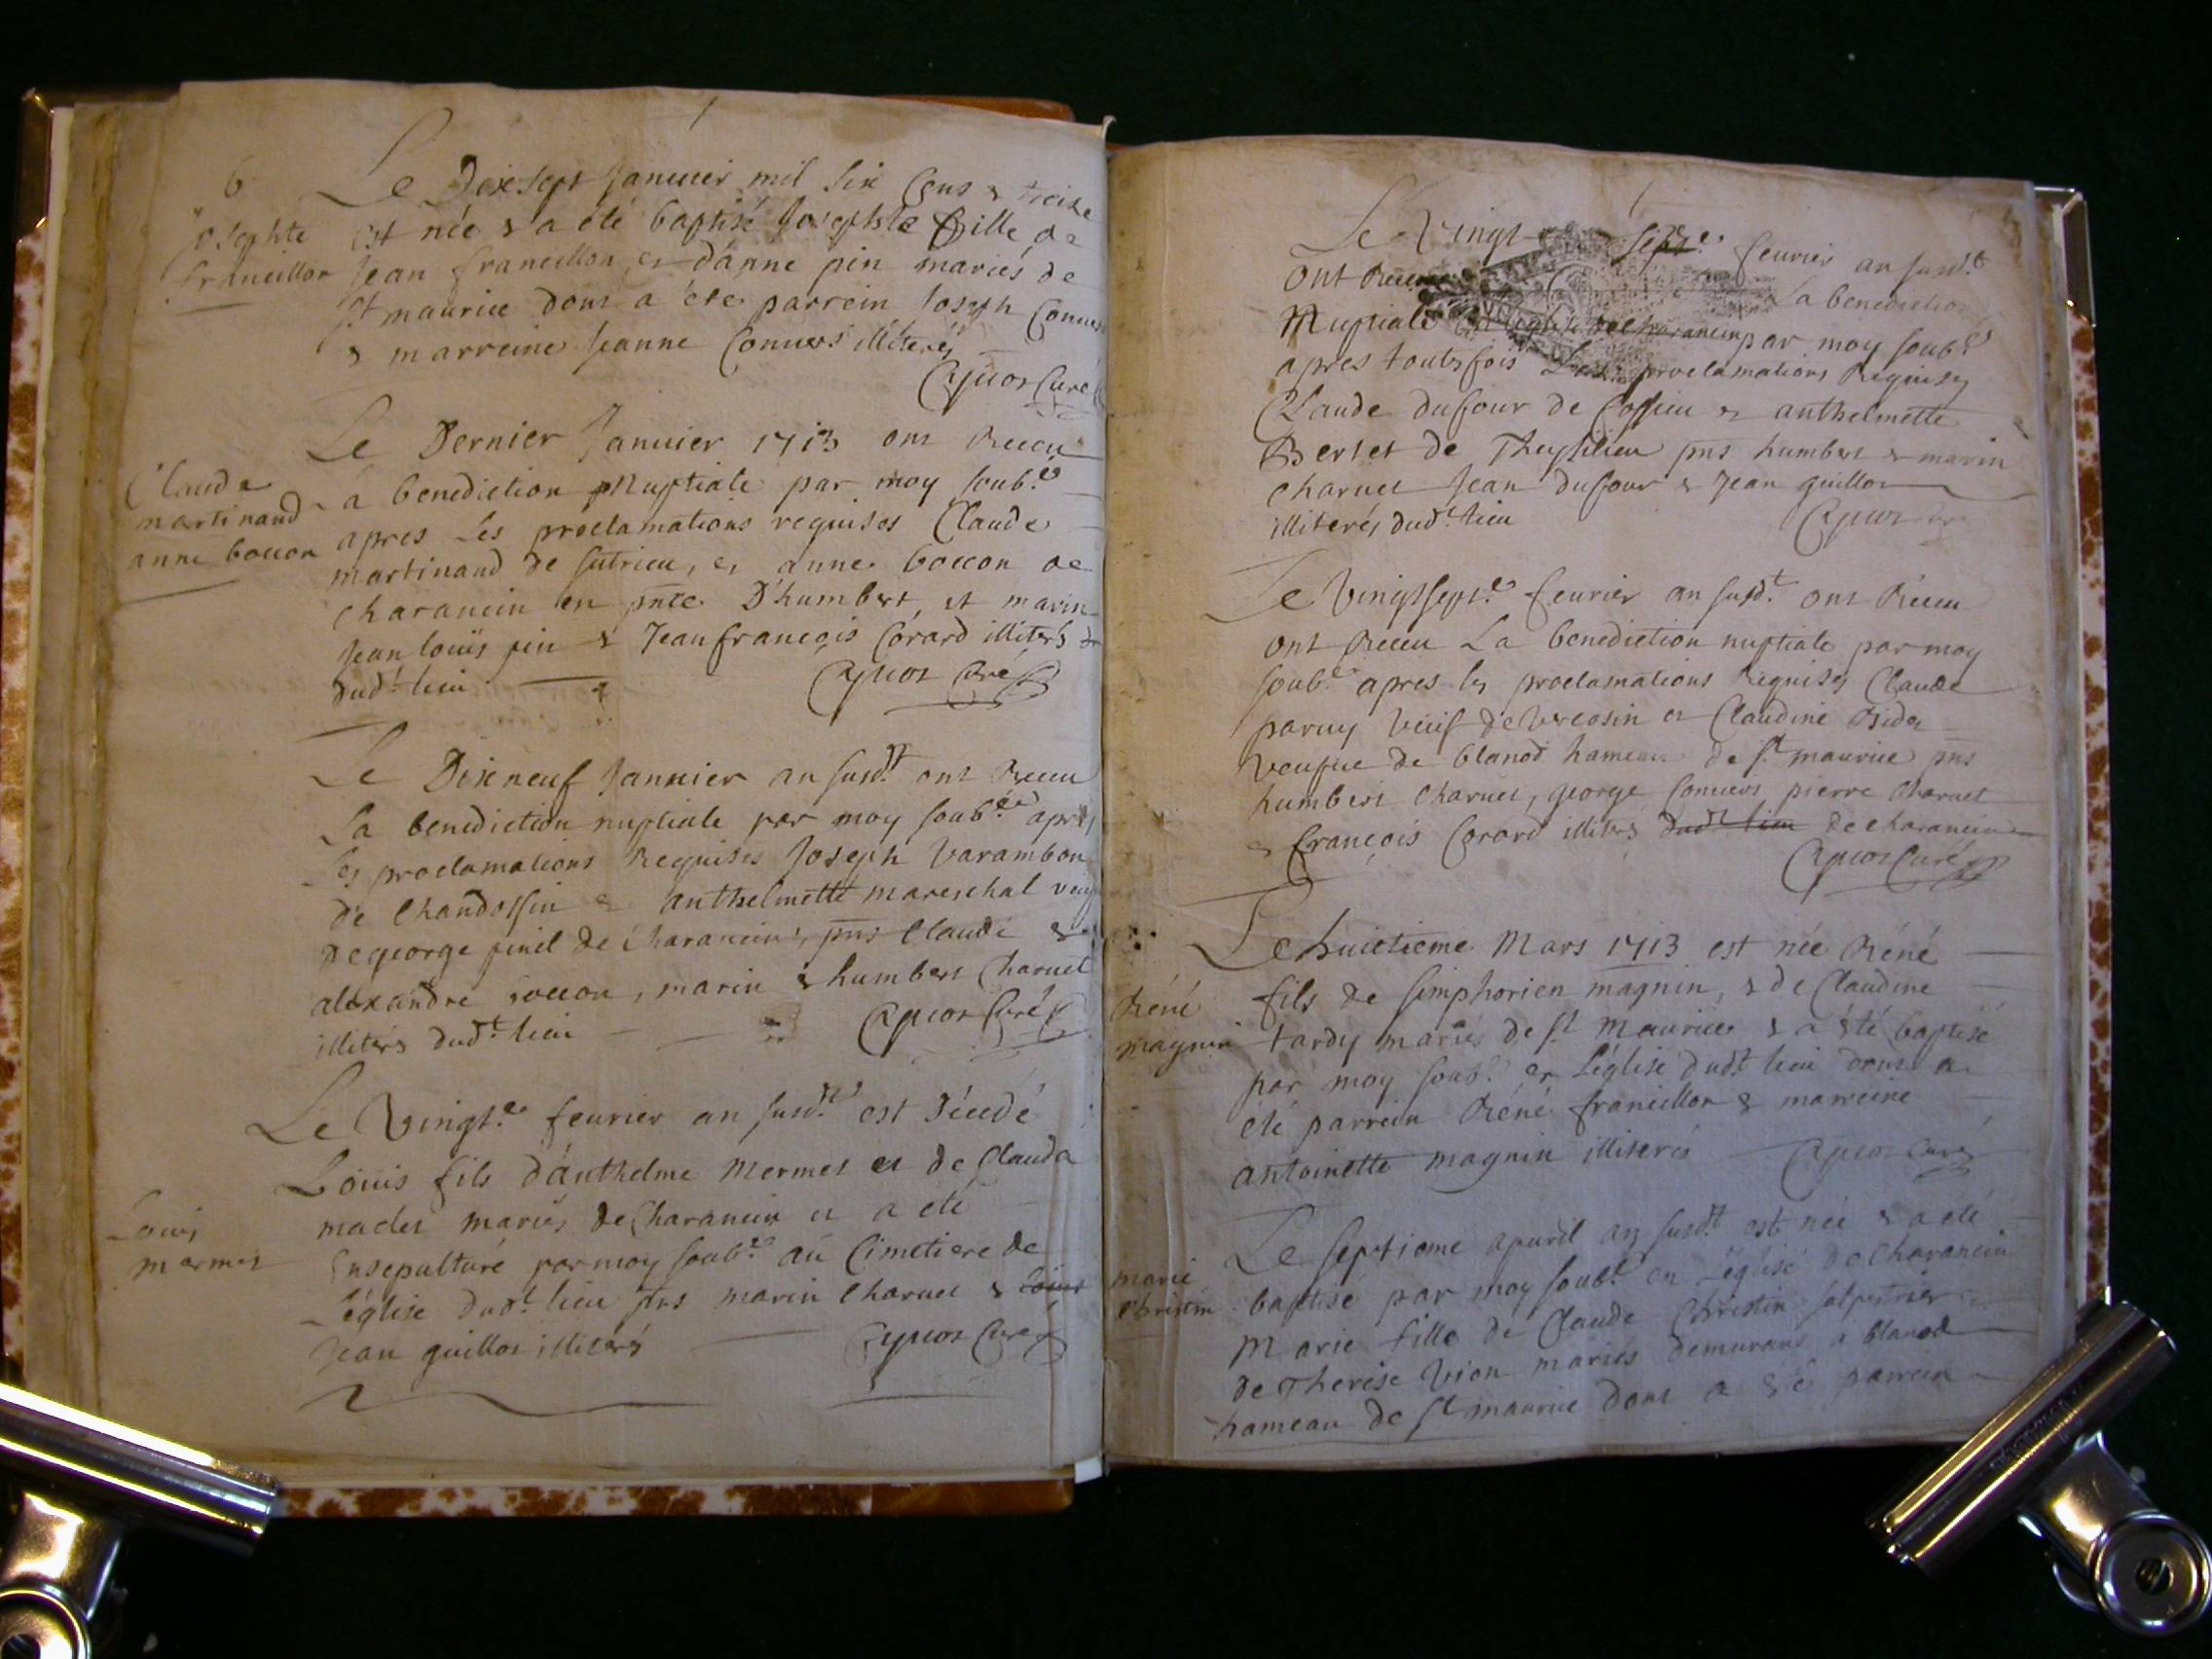 6
Le Dixsept Januier mil six Cens & treize
Josephte est née & a été baptisé Josephte fille de
francillon Jean francillon, et d'anne pin mariés de
St maurice dont a été parrein Joseph Conuers
& marreine Jeanne Conuers illiterés
Curé
Le Dernier Januier 1713 ont Receu
Claude la benediction Nuptiale par moy soub.é
martinand apres Les proclamations requises Claude
anne boccon martinand de sutrieu, et anne boccon de
charancin en pnce D'humbert, et marin
Jean louis pin & Jean françois Corard illiterés
dud.t lieu Curé
Le Dixneuf Januier an susd.t ont Receu
La benediction nuptiale par moy soub.é apres
les proclamations Requises Joseph Varambon
de Chandossin et anthelmette mareschal
de george pinil de Charancin, pns Claude &
alexandre boccon, marin & humbert Charuet
illiterés dud.t lieu Curé
Le Vingt.e feurier an susd.t est décédé
Louis fils d'anthelme Mermet et de Clauda
Louis maclet mariés de Charancin et a été
mermet Ensepulturé par moy soub.é au Cimetiere de
l'église dud.t lieu pns marin Charuet & Louis
Jean guillot illiterés Curé
Le Vingt sept.e feurier an susd.t
ont Receu La benediction
Nuptiale en l'église de charancin par moy soub.é
apres toutesfois Les proclamations Requises
Claude dufour de Cossieu et anthelmette
Bertet de Theysilieu pns humbert & marin
charuet Jean dufour & Jean guillot
illiterés dud.t lieu
Le Vingtsept.e feurier an susd.t ont Receu
ont Receu La benediction nuptiale par moy
soub.é apres les proclamations Requises Claude
paruy Veuf de Vercosin et Claudine
Veufue de blanod hameau de St maurice pns
humbert Charuet, george Conuers pierre Charuet
& françois Corard illiterés dud.t lieu de charancin
Curé
Le huictieme Mars 1713 est née Réné
Réné fils de simphorien magnin, & de Claudine
magnin tardy mariés de St Maurice & a été baptisé
par moy soub.é en L'église dud.t lieu dont a
été parrein Réné francillon & marreine
antoinette magnin illiterés Curé
Le septieme apuril an susd.t est née & a été
marie baptisé par moy soub.é en L'église de Charancin
Christin Marie fille de Claude Christin salpetrier &
de Therese Vion mariés demurans a blanod
hameau de St maurice dont a été parrein